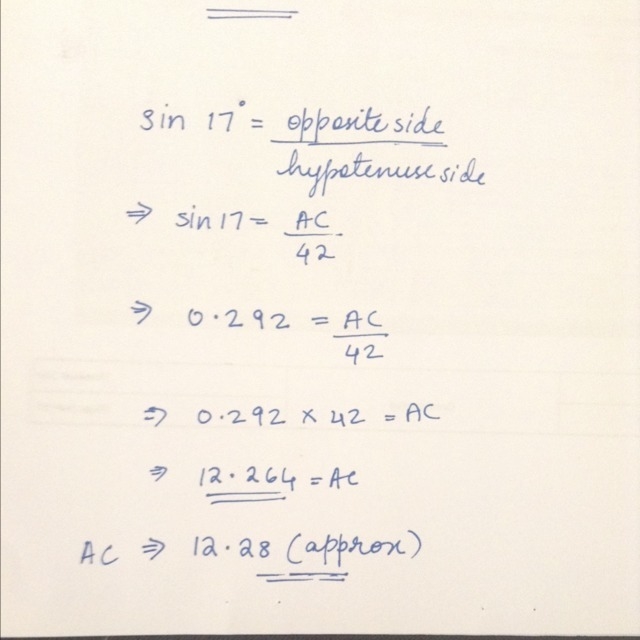 sin 17° = opposite side / hypotenuse side
⇒ sin 17 = AC / 42
⇒ 0.292 = AC / 42
⇒ 0.292 × 42 = AC
⇒ 12.264 = AC
AC ⇒ 12.28 (approx)